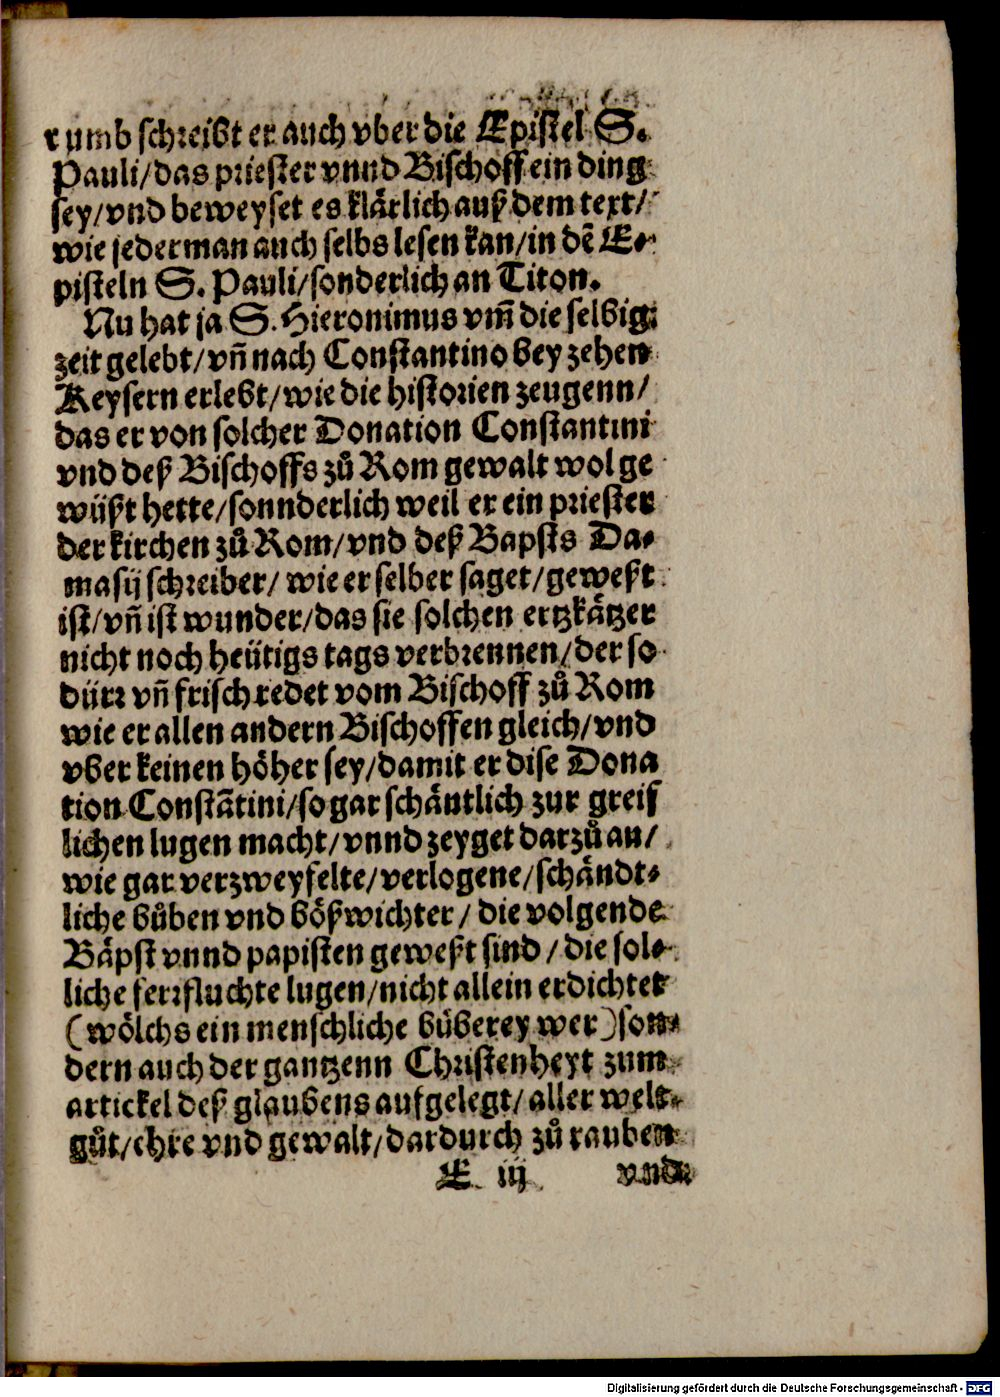 rumb schreibt er auch vber die Epistel S.
Pauli/das priester vnnd Bischoff ein ding
sey/vnd beweyset es klärlich auß dem text/
wie jederman auch selbs lesen kan/in dē E-
pisteln S. Pauli/sonderlich an Titon.
Nu hat ja S. Hieronimus vm̄ die selbig
zeit gelebt/vn̄ nach Constantino bey zehen
Keysern erlebt/wie die historien zeugenn/
das er von solcher Donation Constantini
vnd deß Bischoffs zů Rom gewalt wol ge
wüßt hette/sonnderlich weil er ein priester
der kirchen zů Rom/vnd deß Bapsts Da-
masij schreiber/ wie er selber saget/geweßt
ist/vn̄ ist wunder/das sie solchen ertzkätzer
nicht noch heütigs tags verbrennen/der so
dürr vn̄ frisch redet vom Bischoff zů Rom
wie er allen andern Bischoffen gleich/vnd
vber keinen höher sey/damit er dise Dona
tion Constātini/so gar schäntlich zur greif
lichen lugen macht/vnnd zeyget darzů an/
wie gar verzweyfelte/verlogene/schändt-
liche bůben vnd bößwichter/ die volgende
Bäpst vnnd papisten geweßt sind/ die sol-
liche ferrfluchte lugen/nicht allein erdichtet
(wölchs ein menschliche büberey wer) son-
dern auch der gantzenn Christenheyt zum
artickel deß glaubens aufgelegt/ aller welt
gůt/ehre vnd gewalt/dardurch zů rauben
E iij vnd
Digitalisierung gefördert durch die Deutsche Forschungsgemeinschaft - DFG